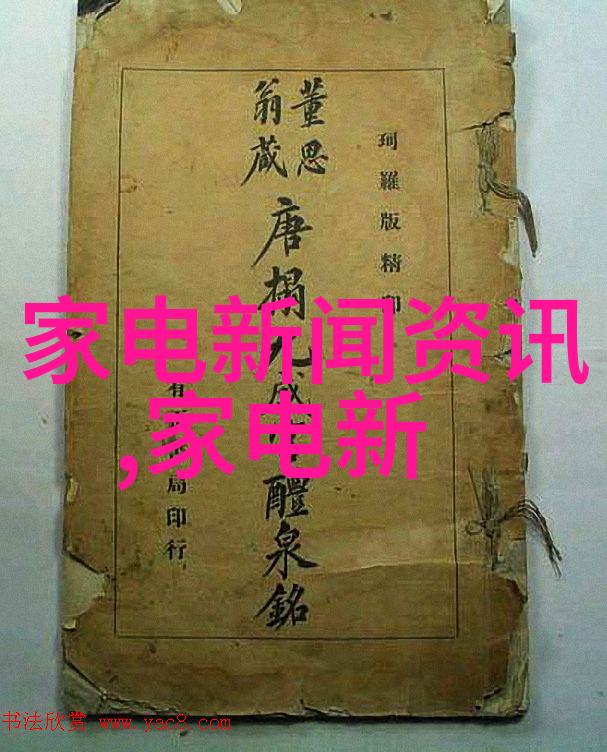 珂羅版精印
董思
翁藏
唐搨九成醴泉銘
有局印行
家电新闻资讯
,家电新
书法欣赏 www.yac8.com